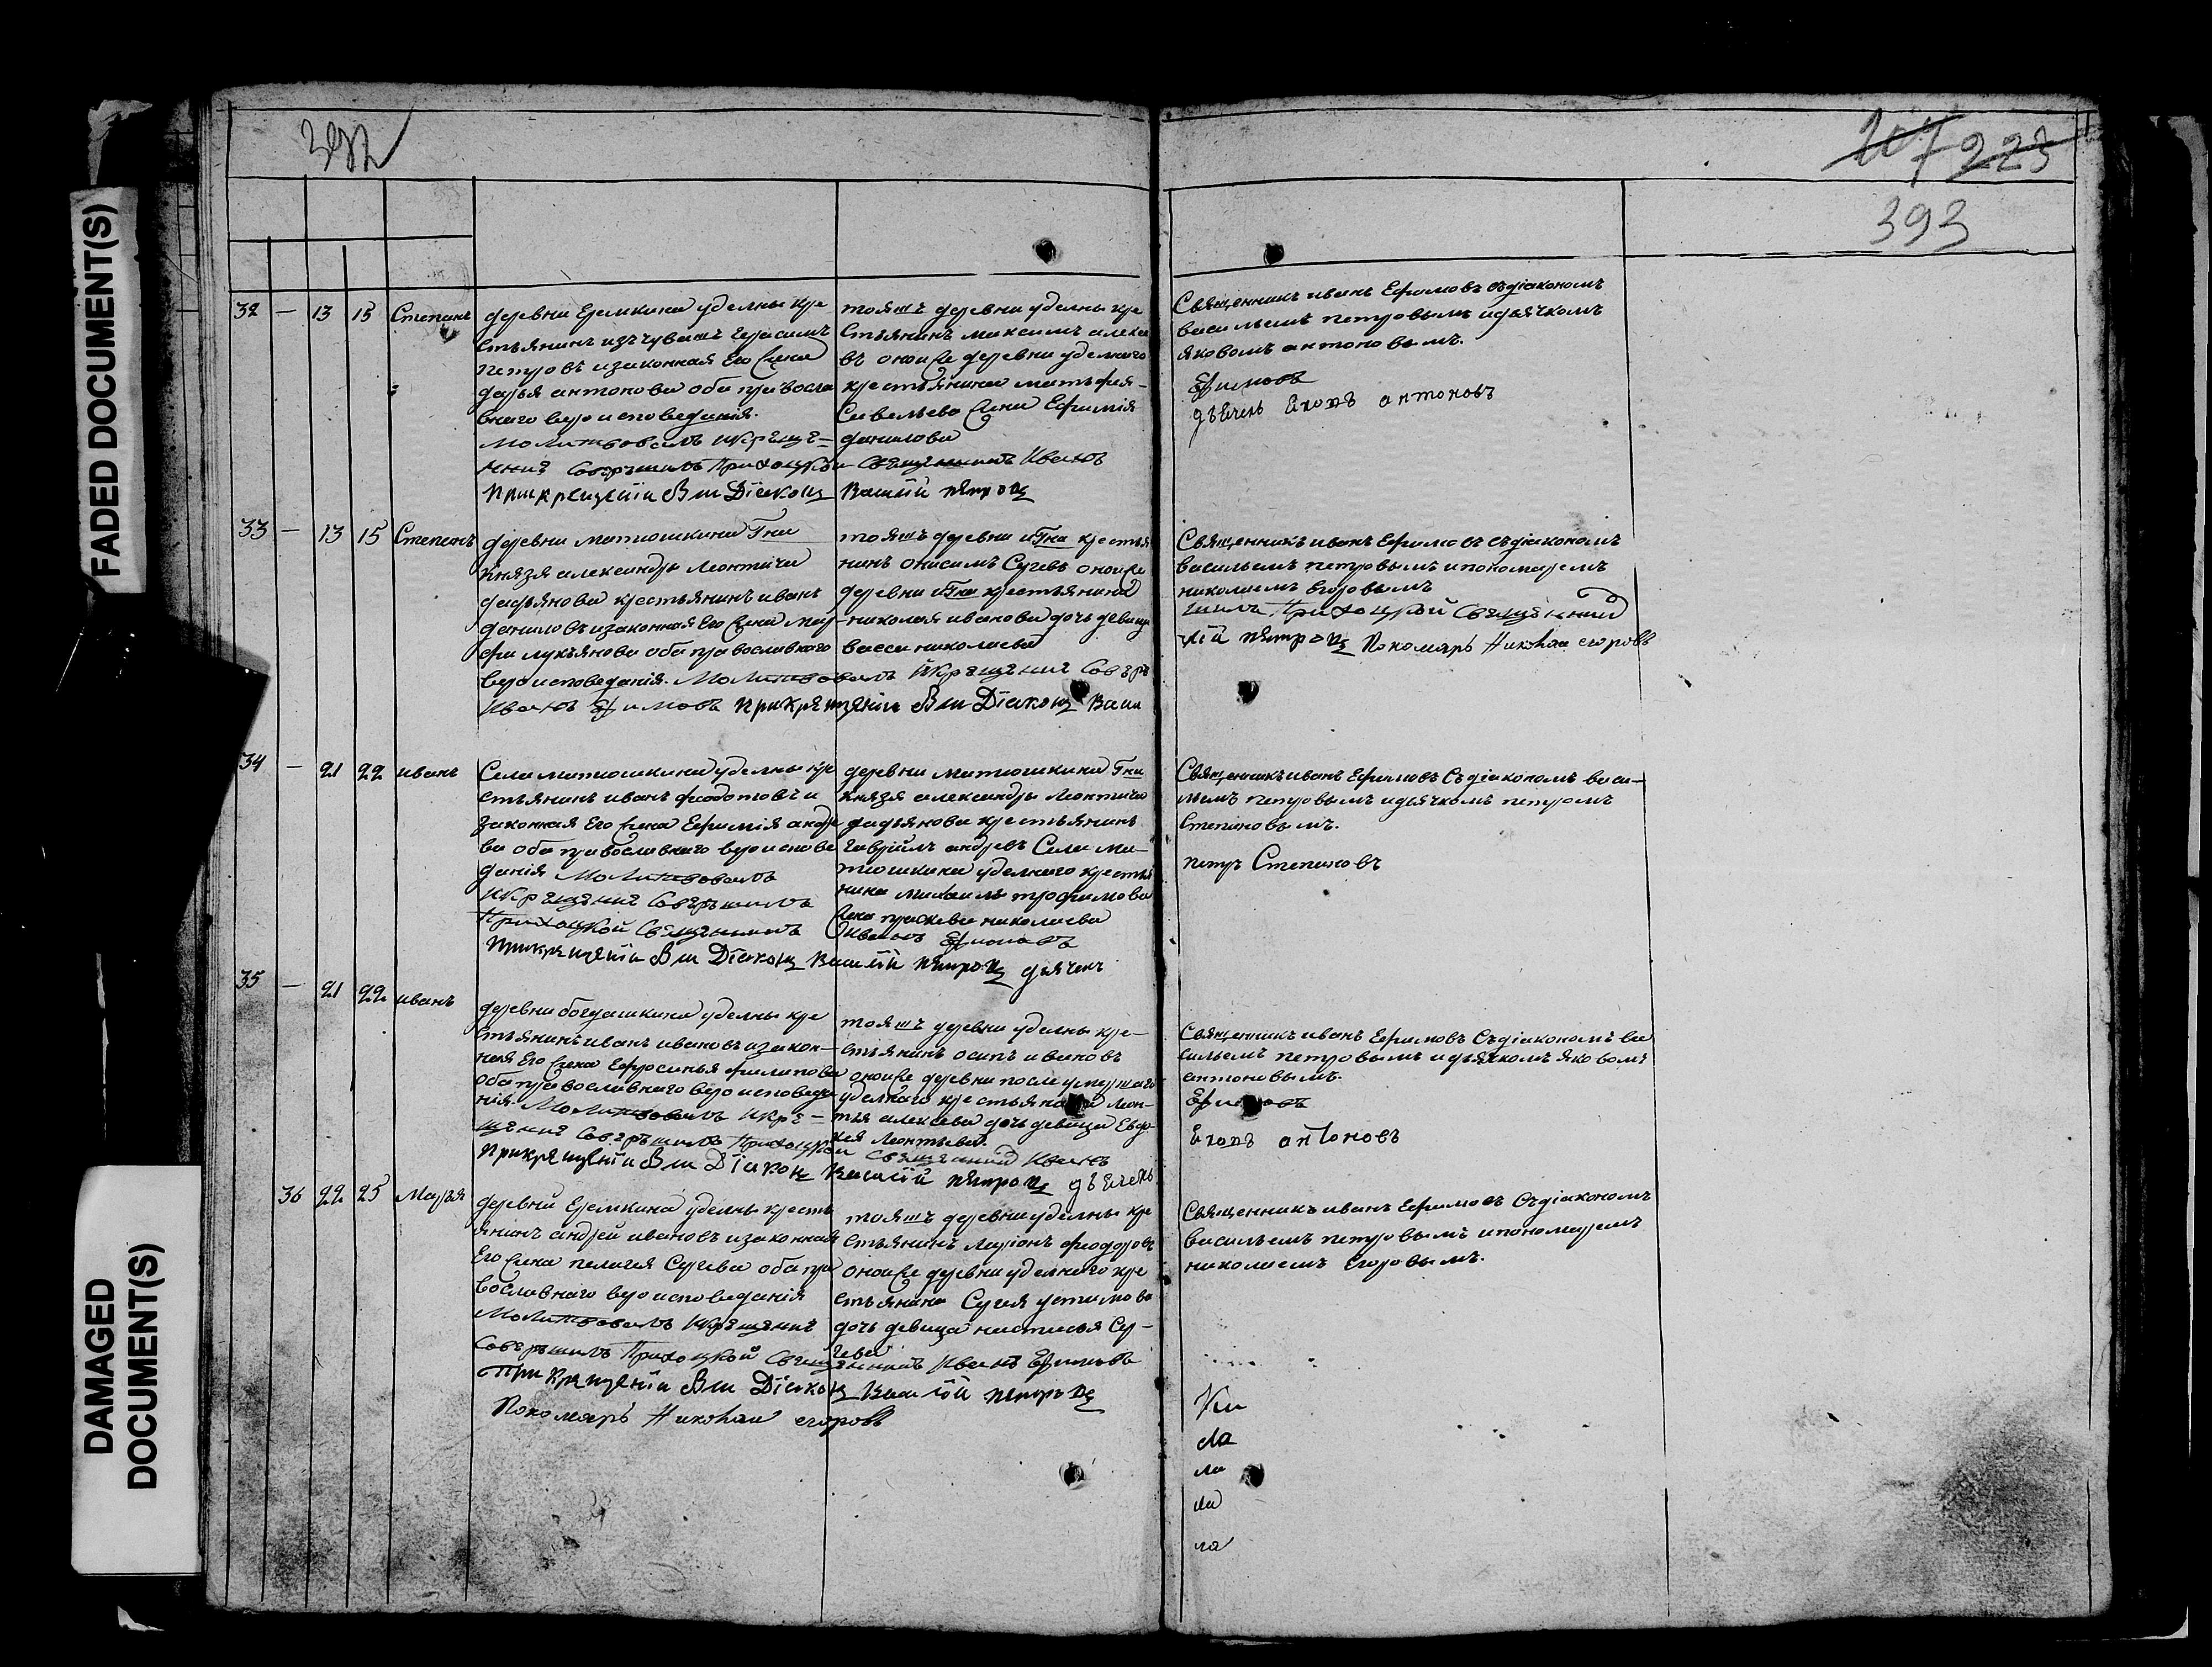 FADED DOCUMENT(S)
DAMAGED
DOCUMENT(S)
392
207 223
393
32 — 13 15 Степанъ
деревни Еремкина уделны кре
стьянинъ изъ чувашъ герасимъ
петровъ изаконная Его жена
дарья антонова оба правосла
внаго вероисповеданія.
Молитвовалъ икреще-
ние Совершилъ Приходской Свещенникъ Иванъ
При крещеніи были Діаконъ Василій петровъ
тояжъ деревни уделны кре
стьянинъ максимъ алексе
въ оной же деревни уделнаго
крестьянина матьфея
Савельева жена Ефимія
данилова
Священникъ иванъ Ефимовъ съдіакономъ
васильемъ петровымъ идьячкомъ
яковомъ антоновымъ.
Ефимовъ
дьечекъ Екопъ антоновъ
33 — 13 15 Степанъ
деревни матюшкина Гна
Князя александра Леонтича
дадьянова крестьянинъ иванъ
даниловъ изаконная Его жена мар-
фа лукъянова оба православнаго
вероисповеданія. Молитвовалъ икрещение Совер
Иванъ Ефимовъ прикрещеніи были Діаконъ Васи
тояжъ деревни иГна крестья
нинъ онисимъ Сергевъ оной же
деревни иГна крестьянина
николая иванова дочь девица
васса николаева
Священникъ иванъ Ефимовъ съдіакономъ
васильемъ петровымъ ипономаремъ
николаемъ Егоровымъ
шилъ Приходской Свещенник
лій петровъ Пономарь Николаи егоровъ
34 — 21 22 иванъ
Села матюшкина уделны кре
стьянинъ иванъ феодотовъ и
законная Его жена Ефимія андре
ва оба православнаго вероиспове
данія Молитвовалъ
икрещение Совершилъ
Приходской Свещенникъ Иванъ Ефимовъ
Прикрещеніи были Діаконъ Василій петровъ дьячекъ
деревни матюшкина Гна
князя александра Леонтича
дадьянова крестьянинъ
гаврилъ андревъ Села ма-
тюшкина уделнаго крестья
нина михаилъ трофимова
жена прасковья николаева
Священникъ иванъ Ефимовъ Съдіакономъ васи-
льемъ петровымъ идьячкомъ петромъ
Степановымъ.
петръ Степановъ
35 — 21 22 иванъ
деревни богдашкина уделны кре
стьянинъ иванъ ивановъ изакон-
ная Его жена Ефросинья филипова
оба православнаго вероисповеда
нія. Молитвовалъ икре-
щение Совершилъ Приходской Свещенник Иванъ
Прикрещеніи были Діаконъ Василій петровъ дьечекъ
тояжъ деревни уделны кре-
стьянинъ осипъ ивановъ
оной же деревни после умершаго
уделнаго крестьянина Леон-
тья алексева дочь девица Евдо-
кея Леонтьева.
Священникъ иванъ Ефимовъ Съдіакономъ ва
сильемъ петровымъ идьячкомъ яковомъ
антоновымъ.
Ефимовъ
Екопъ антоновъ
36 22 25 Марья
деревни Еремкина уделны кресть
янинъ андрей ивановъ изаконная
Его жена пелагея Сергева оба пра
вославнаго вероисповеданія
Молитвовалъ икрещение
Совершилъ Приходской Свещенникъ Иванъ Ефимовъ
При крещеніи были Діаконъ Василій петровъ
Пономарь Николаи егоровъ
тояжъ деревни уделны кре
стьянинъ Ларіонъ феодоровъ
оной же деревни уделнаго кре
стьянина Сергея устимова
дочь девица настасья Сер-
гева
Священникъ иванъ Ефимовъ Съдіакономъ
васильемъ петровымъ ипономаремъ
николаемъ Егоровымъ.
ла
ла
ла
ла